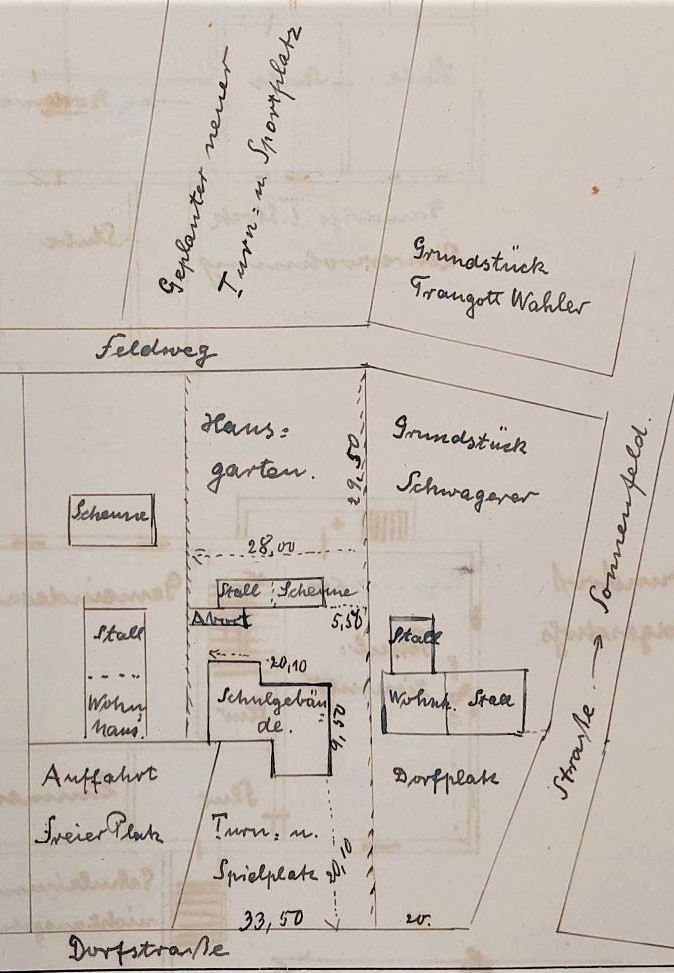 Geplanter neuer
Turn= u. Sportplatz
Grundstück
Traugott Wahler
Feldweg
Haus=
garten.
29,50
Grundstück
Schwagerer
Scheune
28,00
Stall Scheune
Abort
5,50
Stall
Wohn
haus.
20,10
Schulgebäu=
de.
9,50
Stall
Wohnh. Stall
Straße → Sonnenfeld.
Auffahrt
Freier Platz
Turn= u.
Spielplatz
20,10
33,50
Dorfplatz
20.
Dorfstraße